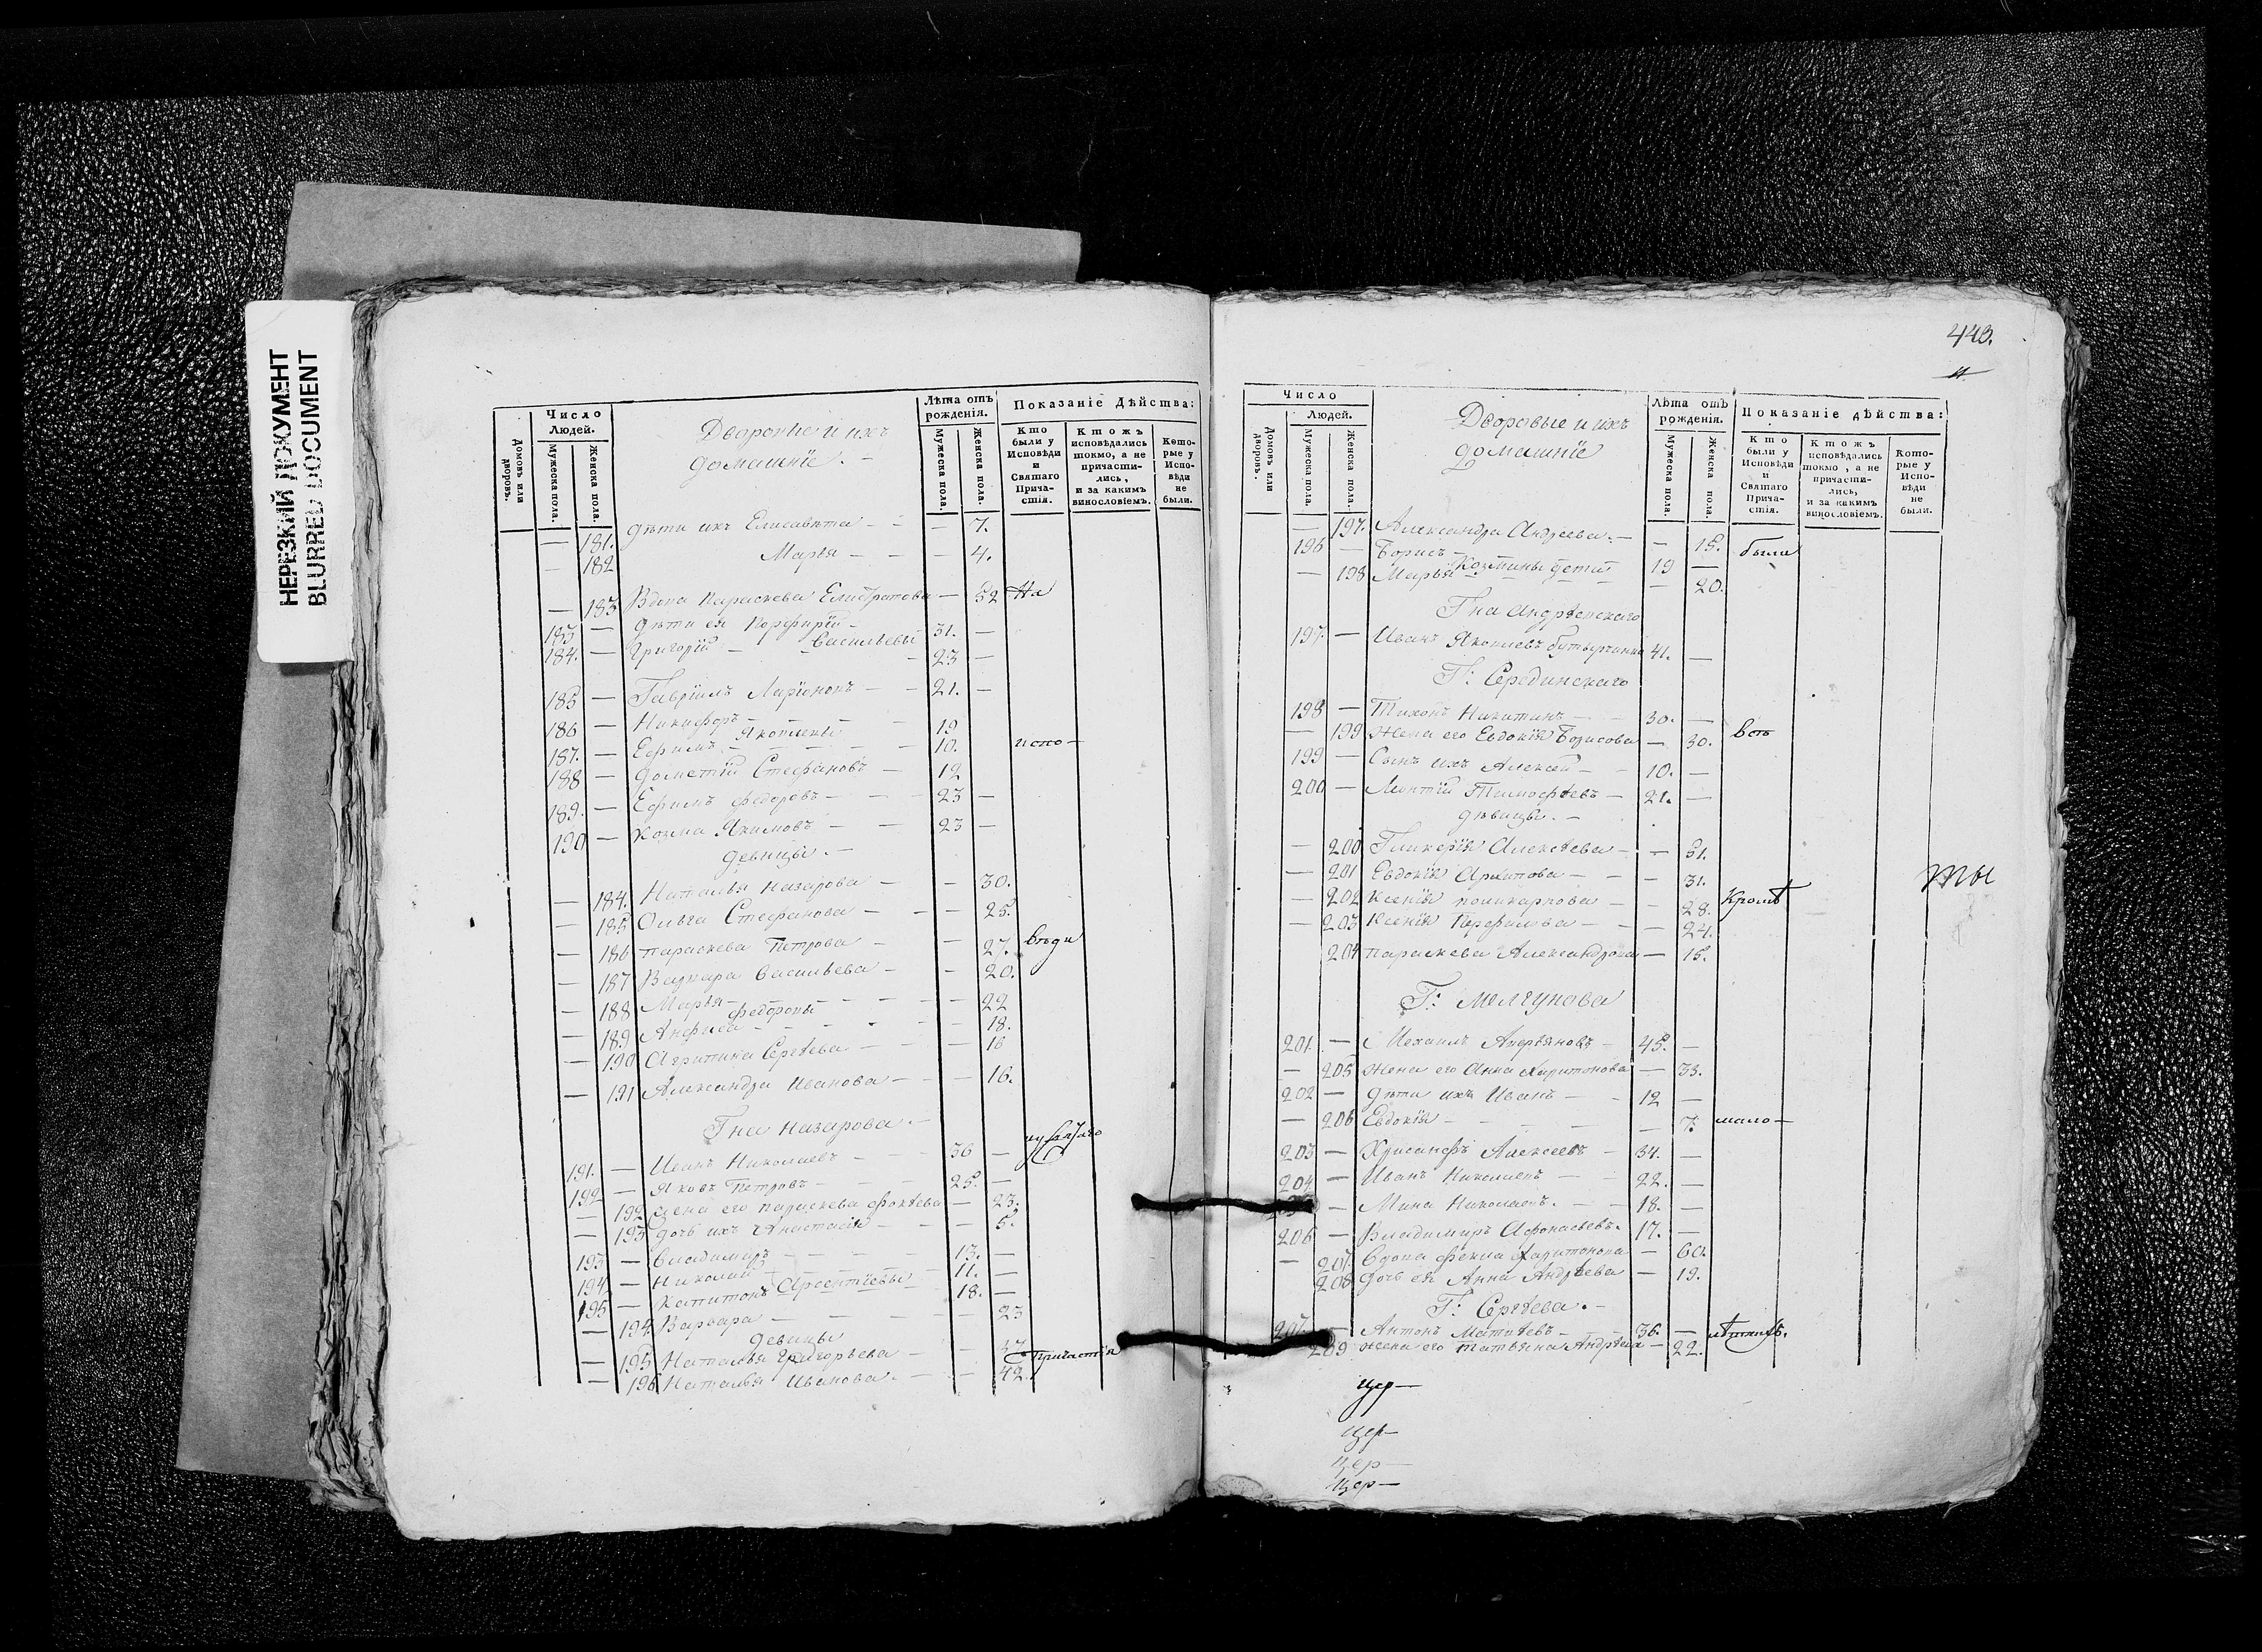 НЕРЕЗКИЙ ДОКУМЕНТ
BLURRED DOCUMENT
Число
Людей.
Домовъ или дворовъ.
Мужеска пола.
Женска пола.
Дворовые и ихъ
домашніе. -
Лѣта отъ
рожденія.
Мужеска пола.
Женска пола.
Показаніе Дѣйства:
Кто были у Исповѣди и Святаго Причастія.
Ктожъ исповѣдались токмо, а не причастились, и за какимъ винословіемъ.
Которые у Исповѣди не были.
— 181. дѣти ихъ Елисавета - - — 7.
— 182 Марья — — — 4.
— 183 Вдова Параскева Елистратова — 52 На
183 — дѣти ея Порфирій - 31. —
184. — Григорій - Васильевы 23 —
185 — Гавріилъ Ларіоновъ — — 21. —
186 — Никифоръ - 19
187. — Ефимъ - Яковлевы 10. испо—
188 — Дометій Стефановъ — 12
189. — Ефимъ Федоровъ - 23 —
190 — Козма Якимовъ — — 23 —
девицы. —
— 184. Наталья Назарова — — 30.
— 185 Ольга Стефанова — — — 25.
— 186 Параскева Петрова — — 27. вѣди
— 187 Варвара Васильева — - 20.
— 188 Марья - — 22
Федоровы
— 189 Анфиса - — 18.
— 190 Агрипина Сергѣева — — 16
— 191 Александра Иванова — — 16.
Гна Назарова. —
191. — Иванъ Николаевъ - 36 —
192 — Яковъ Петровъ - 25. —
— 192 жена его Параскева Фокѣева — 23.
— 193 дочь ихъ Анастасія - — 5.
193 — Владимиръ - 13. —
194 — Николай - 11. —
195 — Капитонъ Арсентіевы 18. —
— 194 Варвара - — 23
девицы
— 195 Наталья Григорьева — Причастія
— 196 Наталья Иванова. — — 42
443.
Число
Людей.
Домовъ или дворовъ.
Мужеска пола.
Женска пола.
Дворовые и ихъ
домашніе
Лѣта отъ
рожденія.
Мужеска пола.
Женска пола.
Показаніе дѣйства:
Кто были у Исповѣди и Святаго Причастія.
Ктожъ исповѣдались токмо, а не причастились, и за какимъ винословіемъ.
Которые у Исповѣди не были.
— 197. Александра Андреева. — — 15. были
196 — Борисъ - 19 —
Козмины дети
— 198 Марья - — 20.
Гна Андрѣевскаго
197. — Иванъ Яковлевъ 41. —
Г: Серединскаго
198 — Тихонъ Никитинъ - 30. —
— 199 жена его Евдокія Борисова — 30. всѣ
199 — Сынъ ихъ Алексей - 10. —
200 — Тимофѣевъ — 21. —
дѣвицы. —
— 200 Гликерія Алексѣева — — 51.
— 201 Евдокія Архипова — — — 31.
— 202 Ксенія Поликарпова — — 28. Кромѣ
— 203 Ксенія Перфилова — — — 24.
204 Параскева Александрова — 15.
ты
Г: Молчунова
201. — Михаилъ Андрѣяновъ — 45. —
— 205 жена его Анна Харитонова — 33.
202 — дѣти ихъ Иванъ — - 12 —
— 206 Евдокія - — 7. мало—
203 — Хрисанфъ Алексеевъ - 34. —
204 — Иванъ Николаевъ - 22. —
205 — Мина Николаевъ. - 18. —
206 — Владимиръ Афонасьевъ. 17. —
— 207. Вдова Фекла Харитонова — 60.
208 дочь ея Анна Андрѣева — 19.
Г: Сергѣева. —
207 — Антонъ Матвѣевъ - 36. — лѣтныхъ.
209 жена его Татьяна Андрѣева — 22.
цер—
цер—
цер—
цер—